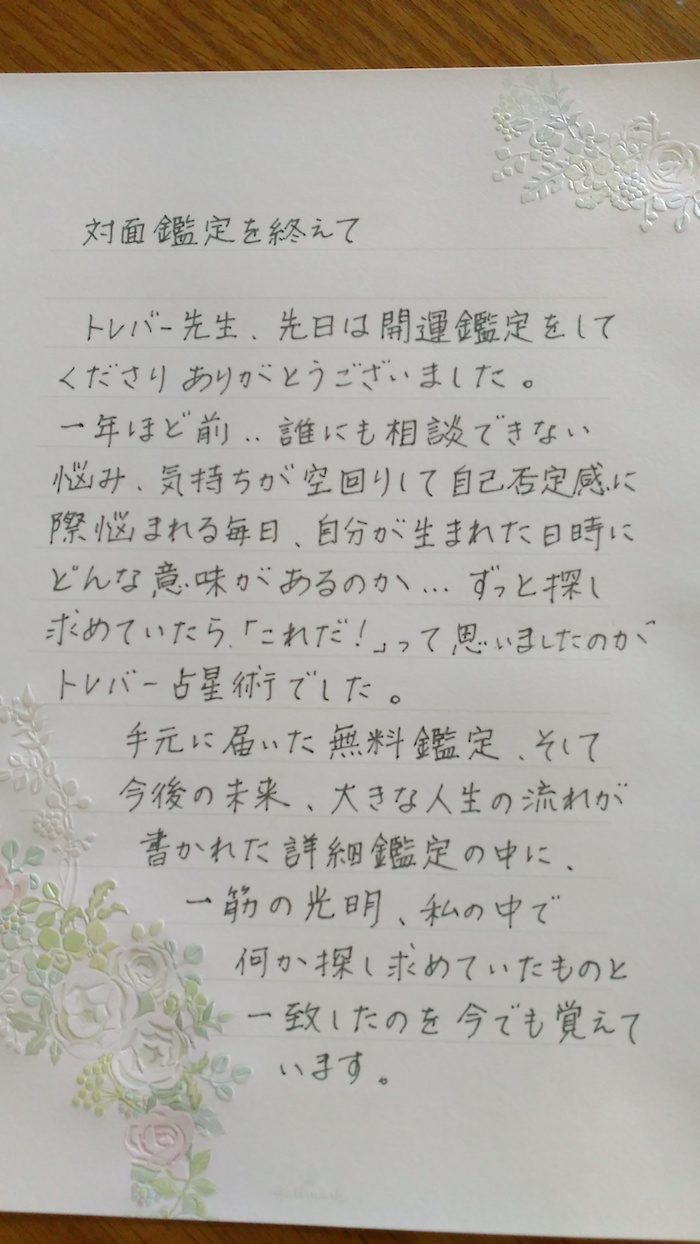 対面鑑定を終えて
トレバー先生、先日は開運鑑定をして
くださりありがとうございました。
一年ほど前‥誰にも相談できない
悩み、気持ちが空回りして自己否定感に
際悩まれる毎日、自分が生まれた日時に
どんな意味があるのか…ずっと探し
求めていたら、「これだ！」って思いましたのが
トレバー占星術でした。
手元に届いた無料鑑定、そして
今後の未来、大きな人生の流れが
書かれた詳細鑑定の中に、
一筋の光明、私の中で
何か探し求めていたものと
一致したのを今でも覚えて
います。